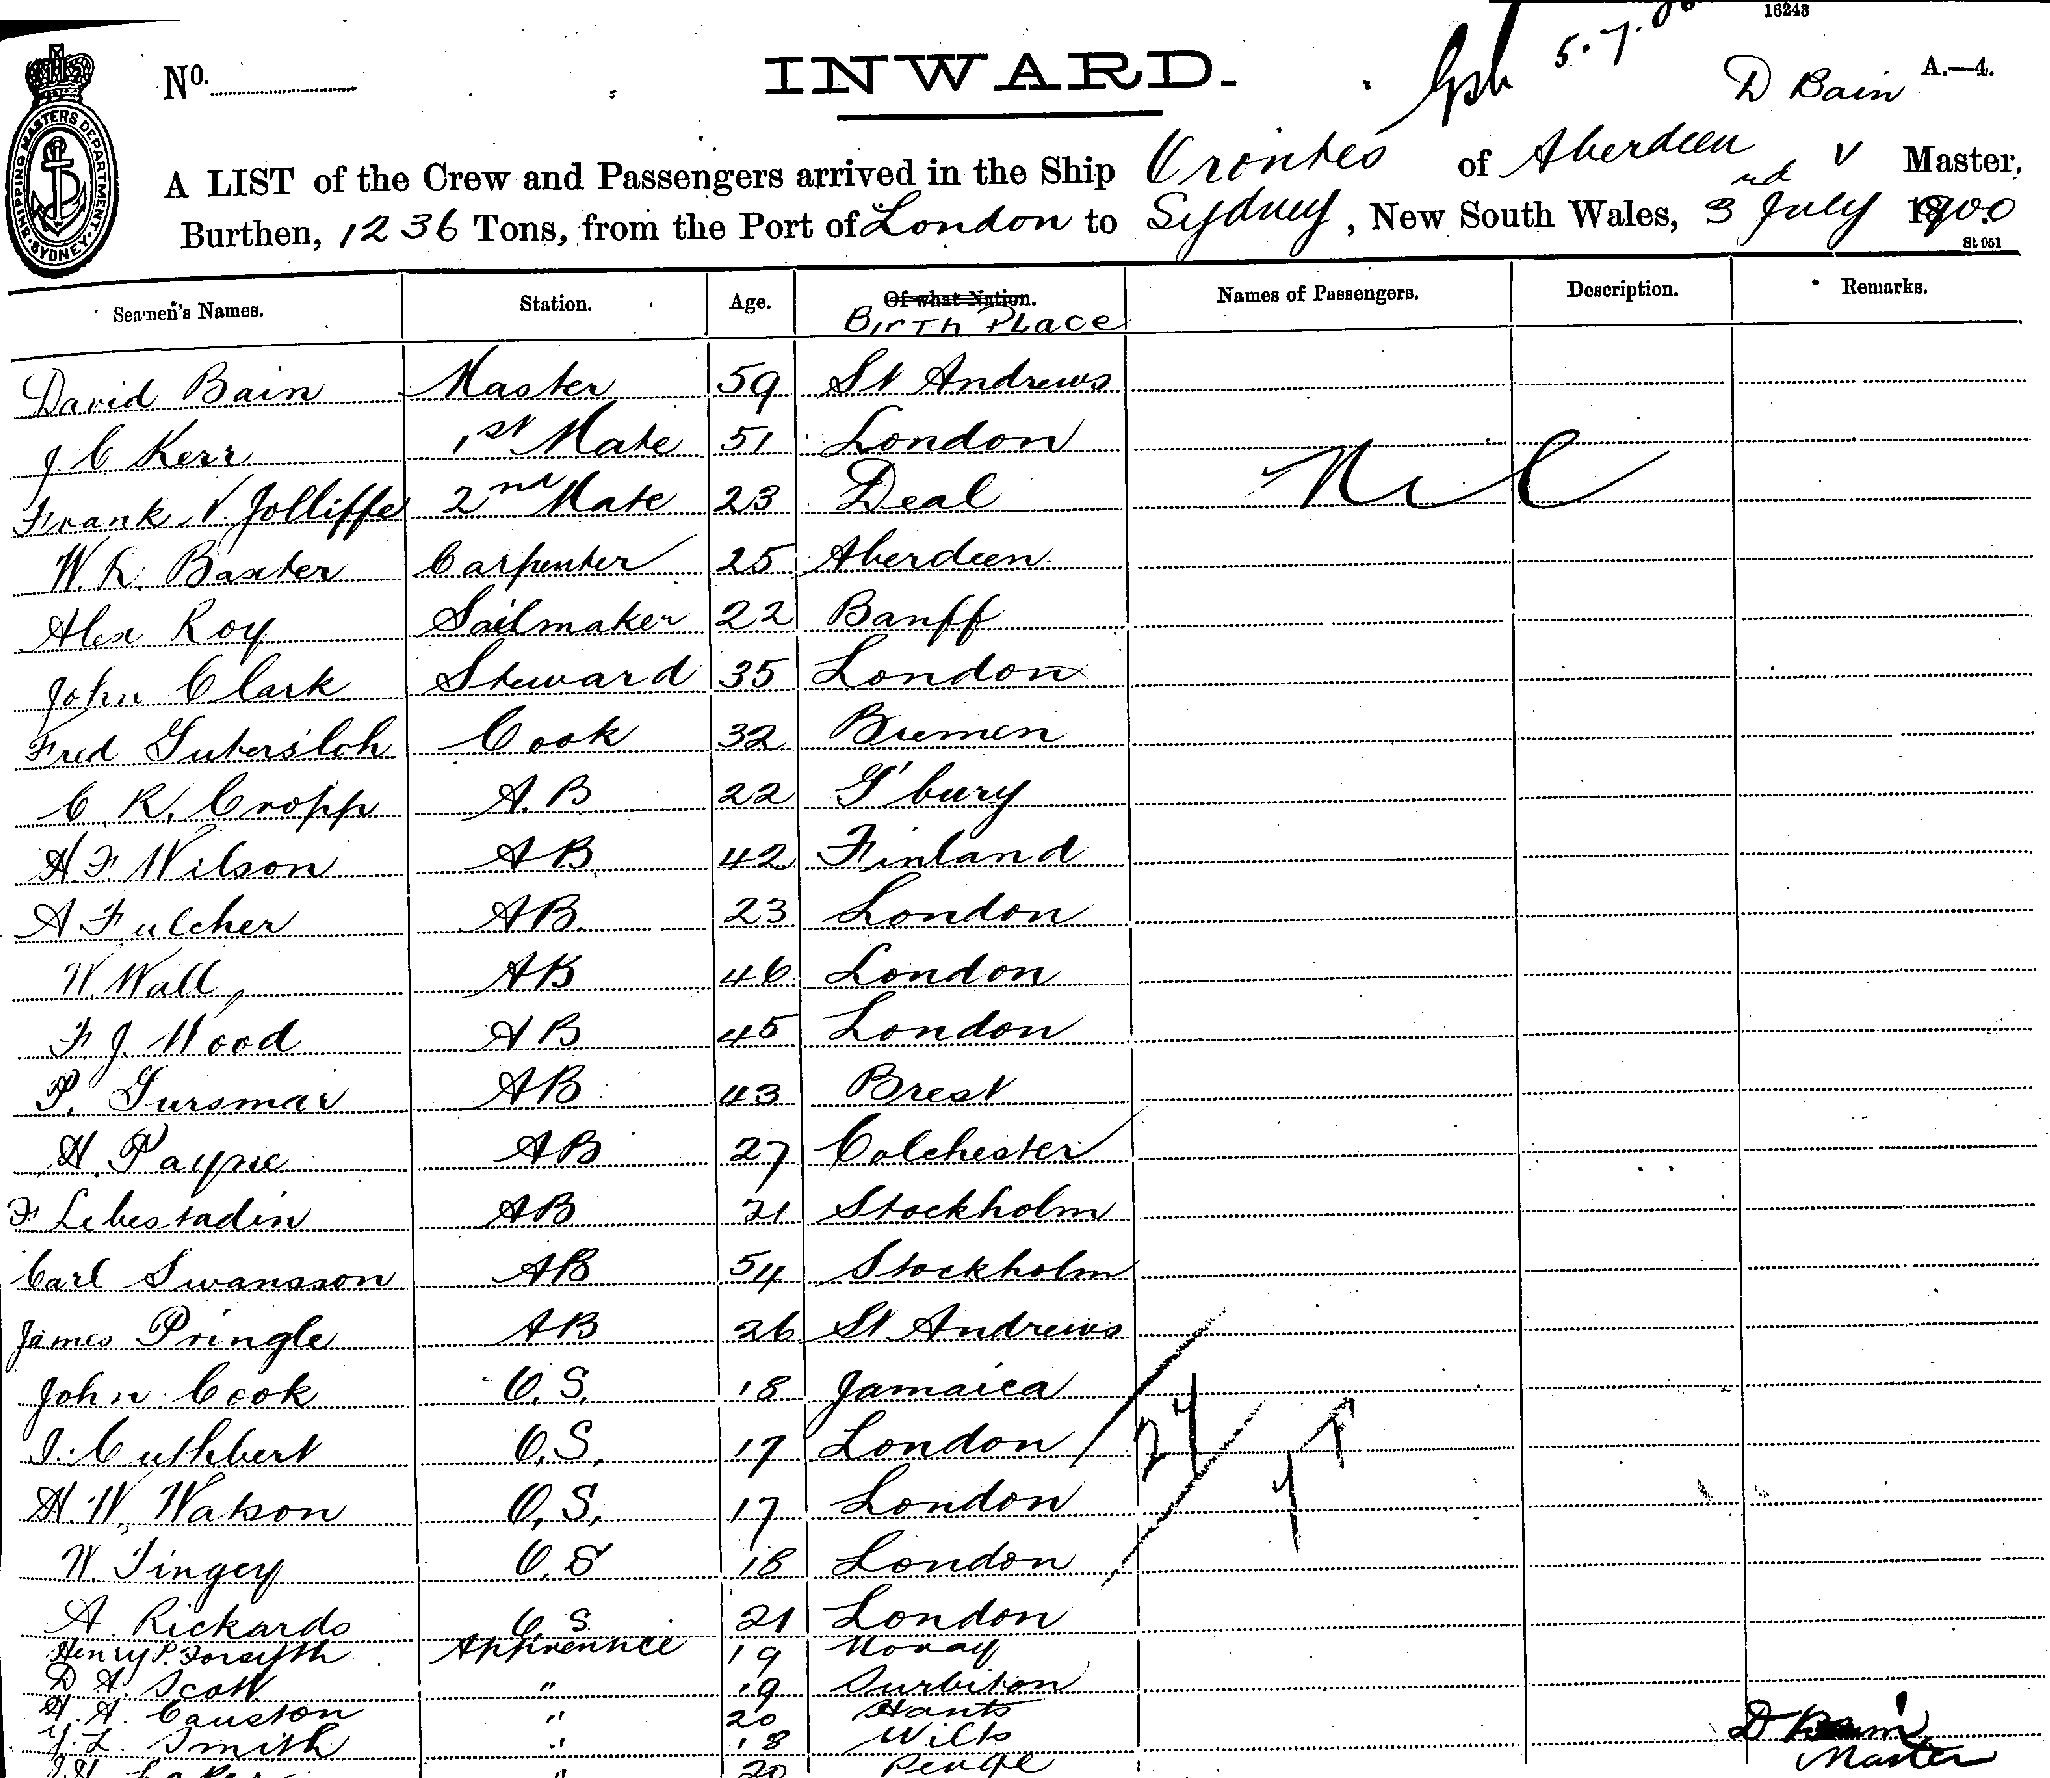 16243
5.7.00
No.
INWARD.
D Bain
A.—4.
SHIPPING MASTERS DEPARTMENT SYDNEY
A LIST of the Crew and Passengers arrived in the Ship Orontes of Aberdeen, Master,
Burthen, 1236 Tons, from the Port of London to Sydney, New South Wales, 3rd July 1900
St 051
Seamen's Names. Station. Age. Of what Nation. Names of Passengers. Description. Remarks.
Birth Place
David Bain Master 59 St Andrews
J C Kerr 1st Mate 51 London
Nil
Frank V. Jolliffe 2nd Mate 23 Deal
W. L. Baxter Carpenter 25 Aberdeen
Alex Roy Sailmaker 22 Banff
John Clark Steward 35 London
Fred Gutersloh Cook 32 Bremen
C. R. Cropp A.B 22 G'bury
H. F Wilson AB 42 Finland
A Fulcher AB. 23 London
W. Wall AB 46 London
F J. Wood AB 45 London
P. Gursmar AB 43 Brest
H. Payne AB 27 Colchester
F Lebestadin AB 21 Stockholm
Carl Swansson AB 54 Stockholm
James Pringle AB 26 St Andrews
John Cook O.S. 18 Jamaica
J. Cuthbert O.S. 17 London
24
H. W. Watson O.S. 17 London
W. Tingey O.S 18 London
A. Rickards O.S 21 London
Henry P. Forsyth Apprentice 19 Moray
D A. Scott " 19 Surbiton
H. A. Causton " 20 Hants
L. Smith " 18 Wilts
" 20 Penge
D Bain
Master